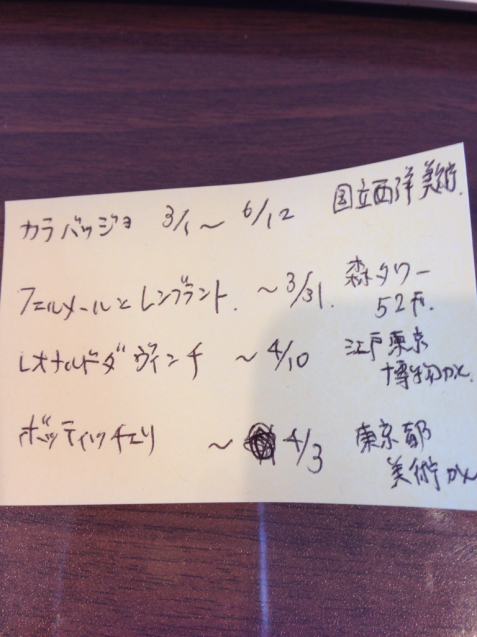 カラバッジョ 3/1～ 6/12 国立西洋美術.
フェルメールとレンブラント. ～3/31. 森タワー
52F.
レオナルドダヴィンチ ～4/10 江戸東京
博物かん
ボッティッチェリ ～ 4/3 東京都
美術かん